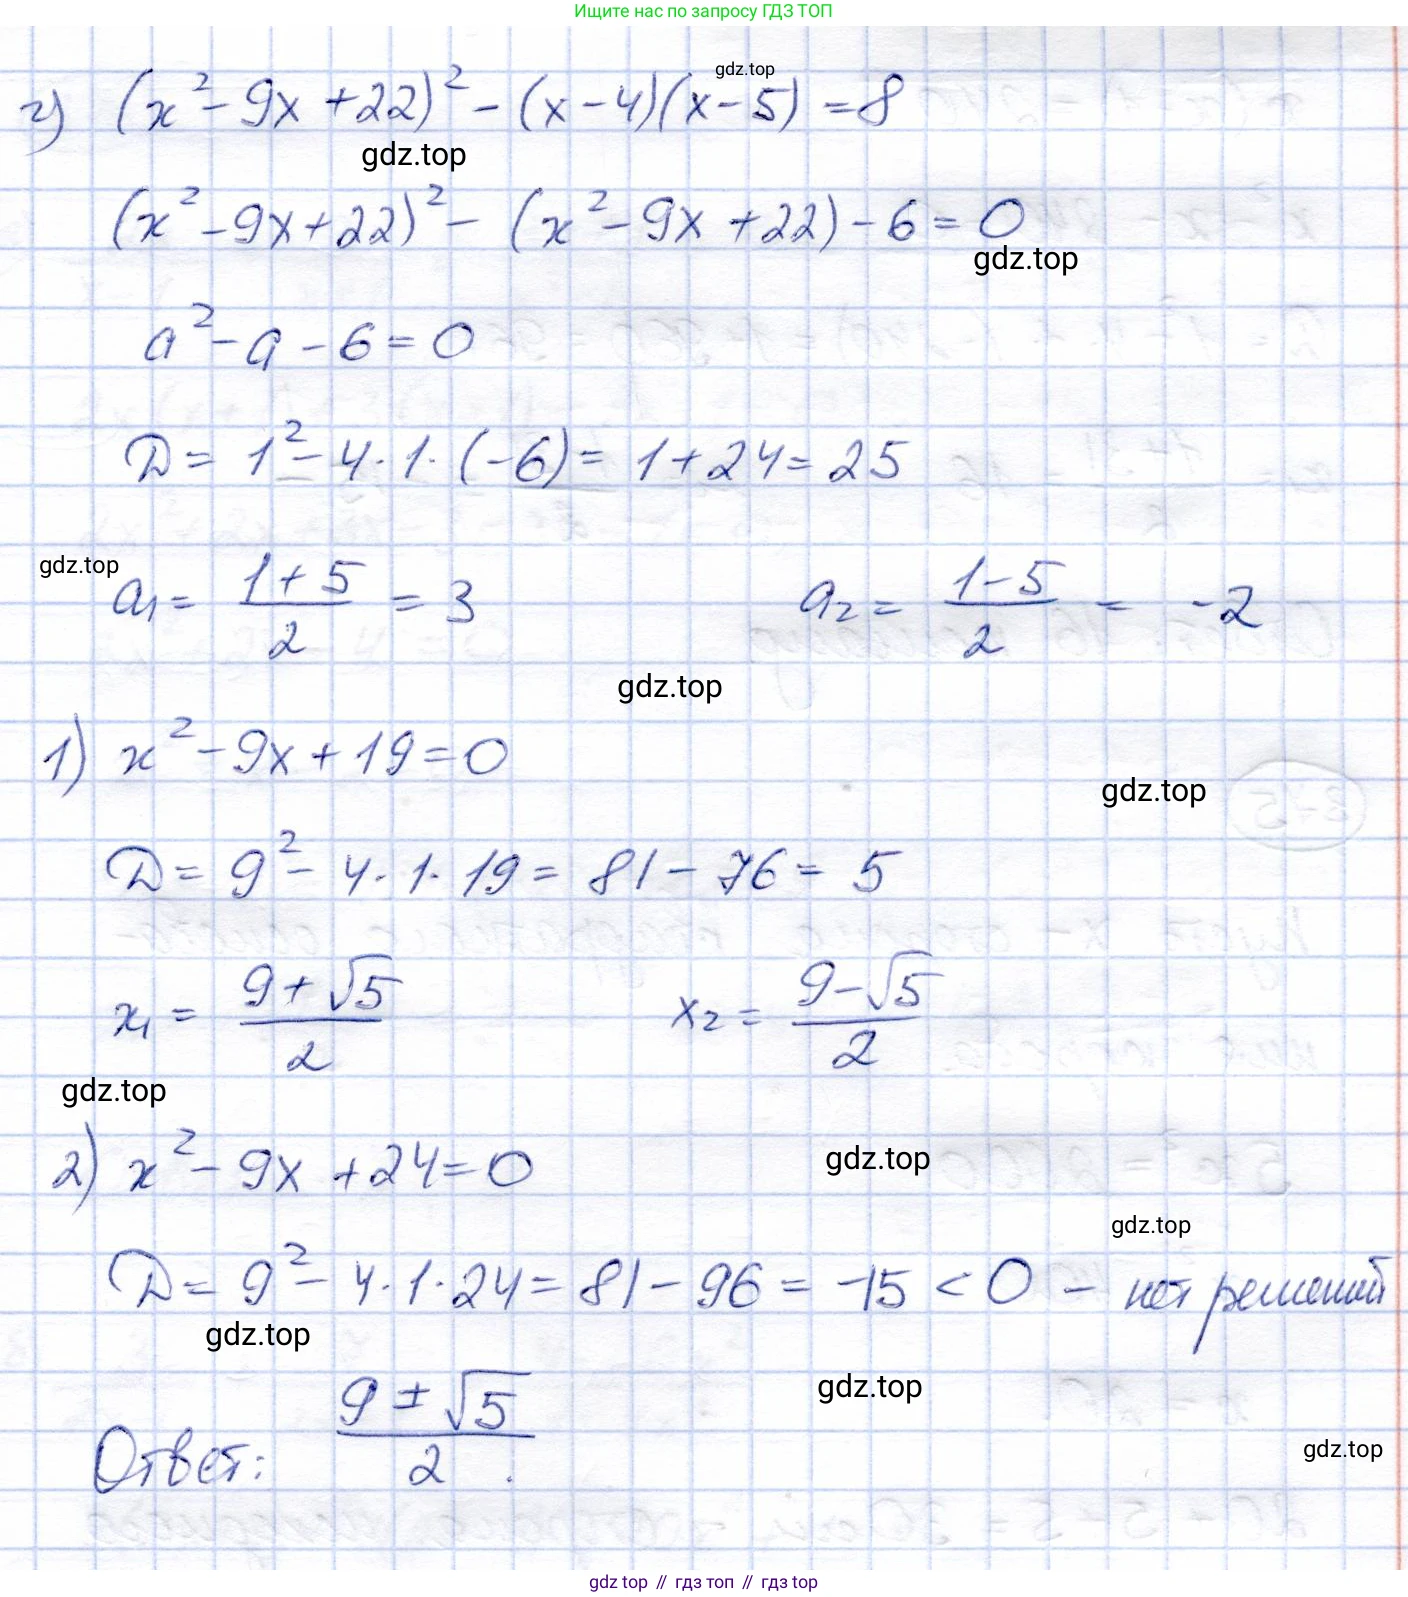 Ищите нас по запросу ГДЗ ТОП
г) (x² - 9x + 22)² - (x - 4)(x - 5) = 8
gdz.top
gdz.top
(x² - 9x + 22)² - (x² - 9x + 22) - 6 = 0
gdz.top
a² - a - 6 = 0
D = 1² - 4 · 1 · (-6) = 1 + 24 = 25
gdz.top
a₁ = (1 + 5)/2 = 3 a₂ = (1 - 5)/2 = -2
gdz.top
1) x² - 9x + 19 = 0
gdz.top
D = 9² - 4 · 1 · 19 = 81 - 76 = 5
x₁ = (9 + √5)/2 x₂ = (9 - √5)/2
gdz.top
2) x² - 9x + 24 = 0
gdz.top
gdz.top
D = 9² - 4 · 1 · 24 = 81 - 96 = -15 < 0 - нет решений
gdz.top
gdz.top
Ответ: (9 ± √5)/2 .
gdz.top
gdz top // гдз топ // гдз top